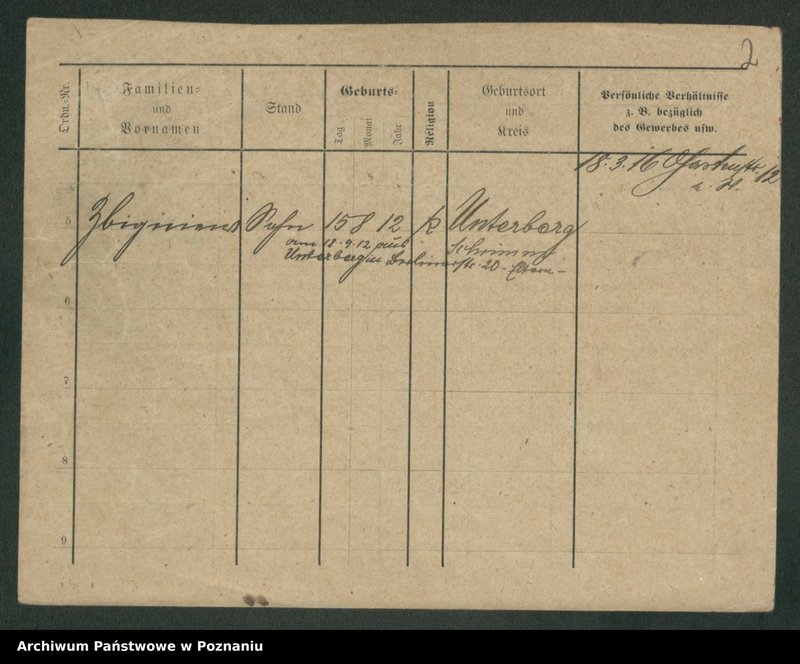 2
Ordn.-Nr.
Familien-
und
Vornamen
Stand
Geburts-
Tag
Monat
Jahr
Religion
Geburtsort
und
Kreis
Persönliche Verhältnisse
z. B. bezüglich
des Gewerbes usw.
18.3.16 Gartenstr. 12
5 Zbigniew Sohn 15 8 12 k Unterberg
Schrimm
am 18.9.12 aus
Unterberg Berlinerstr. 20 - Eltern -
6
7
8
9
Archiwum Państwowe w Poznaniu